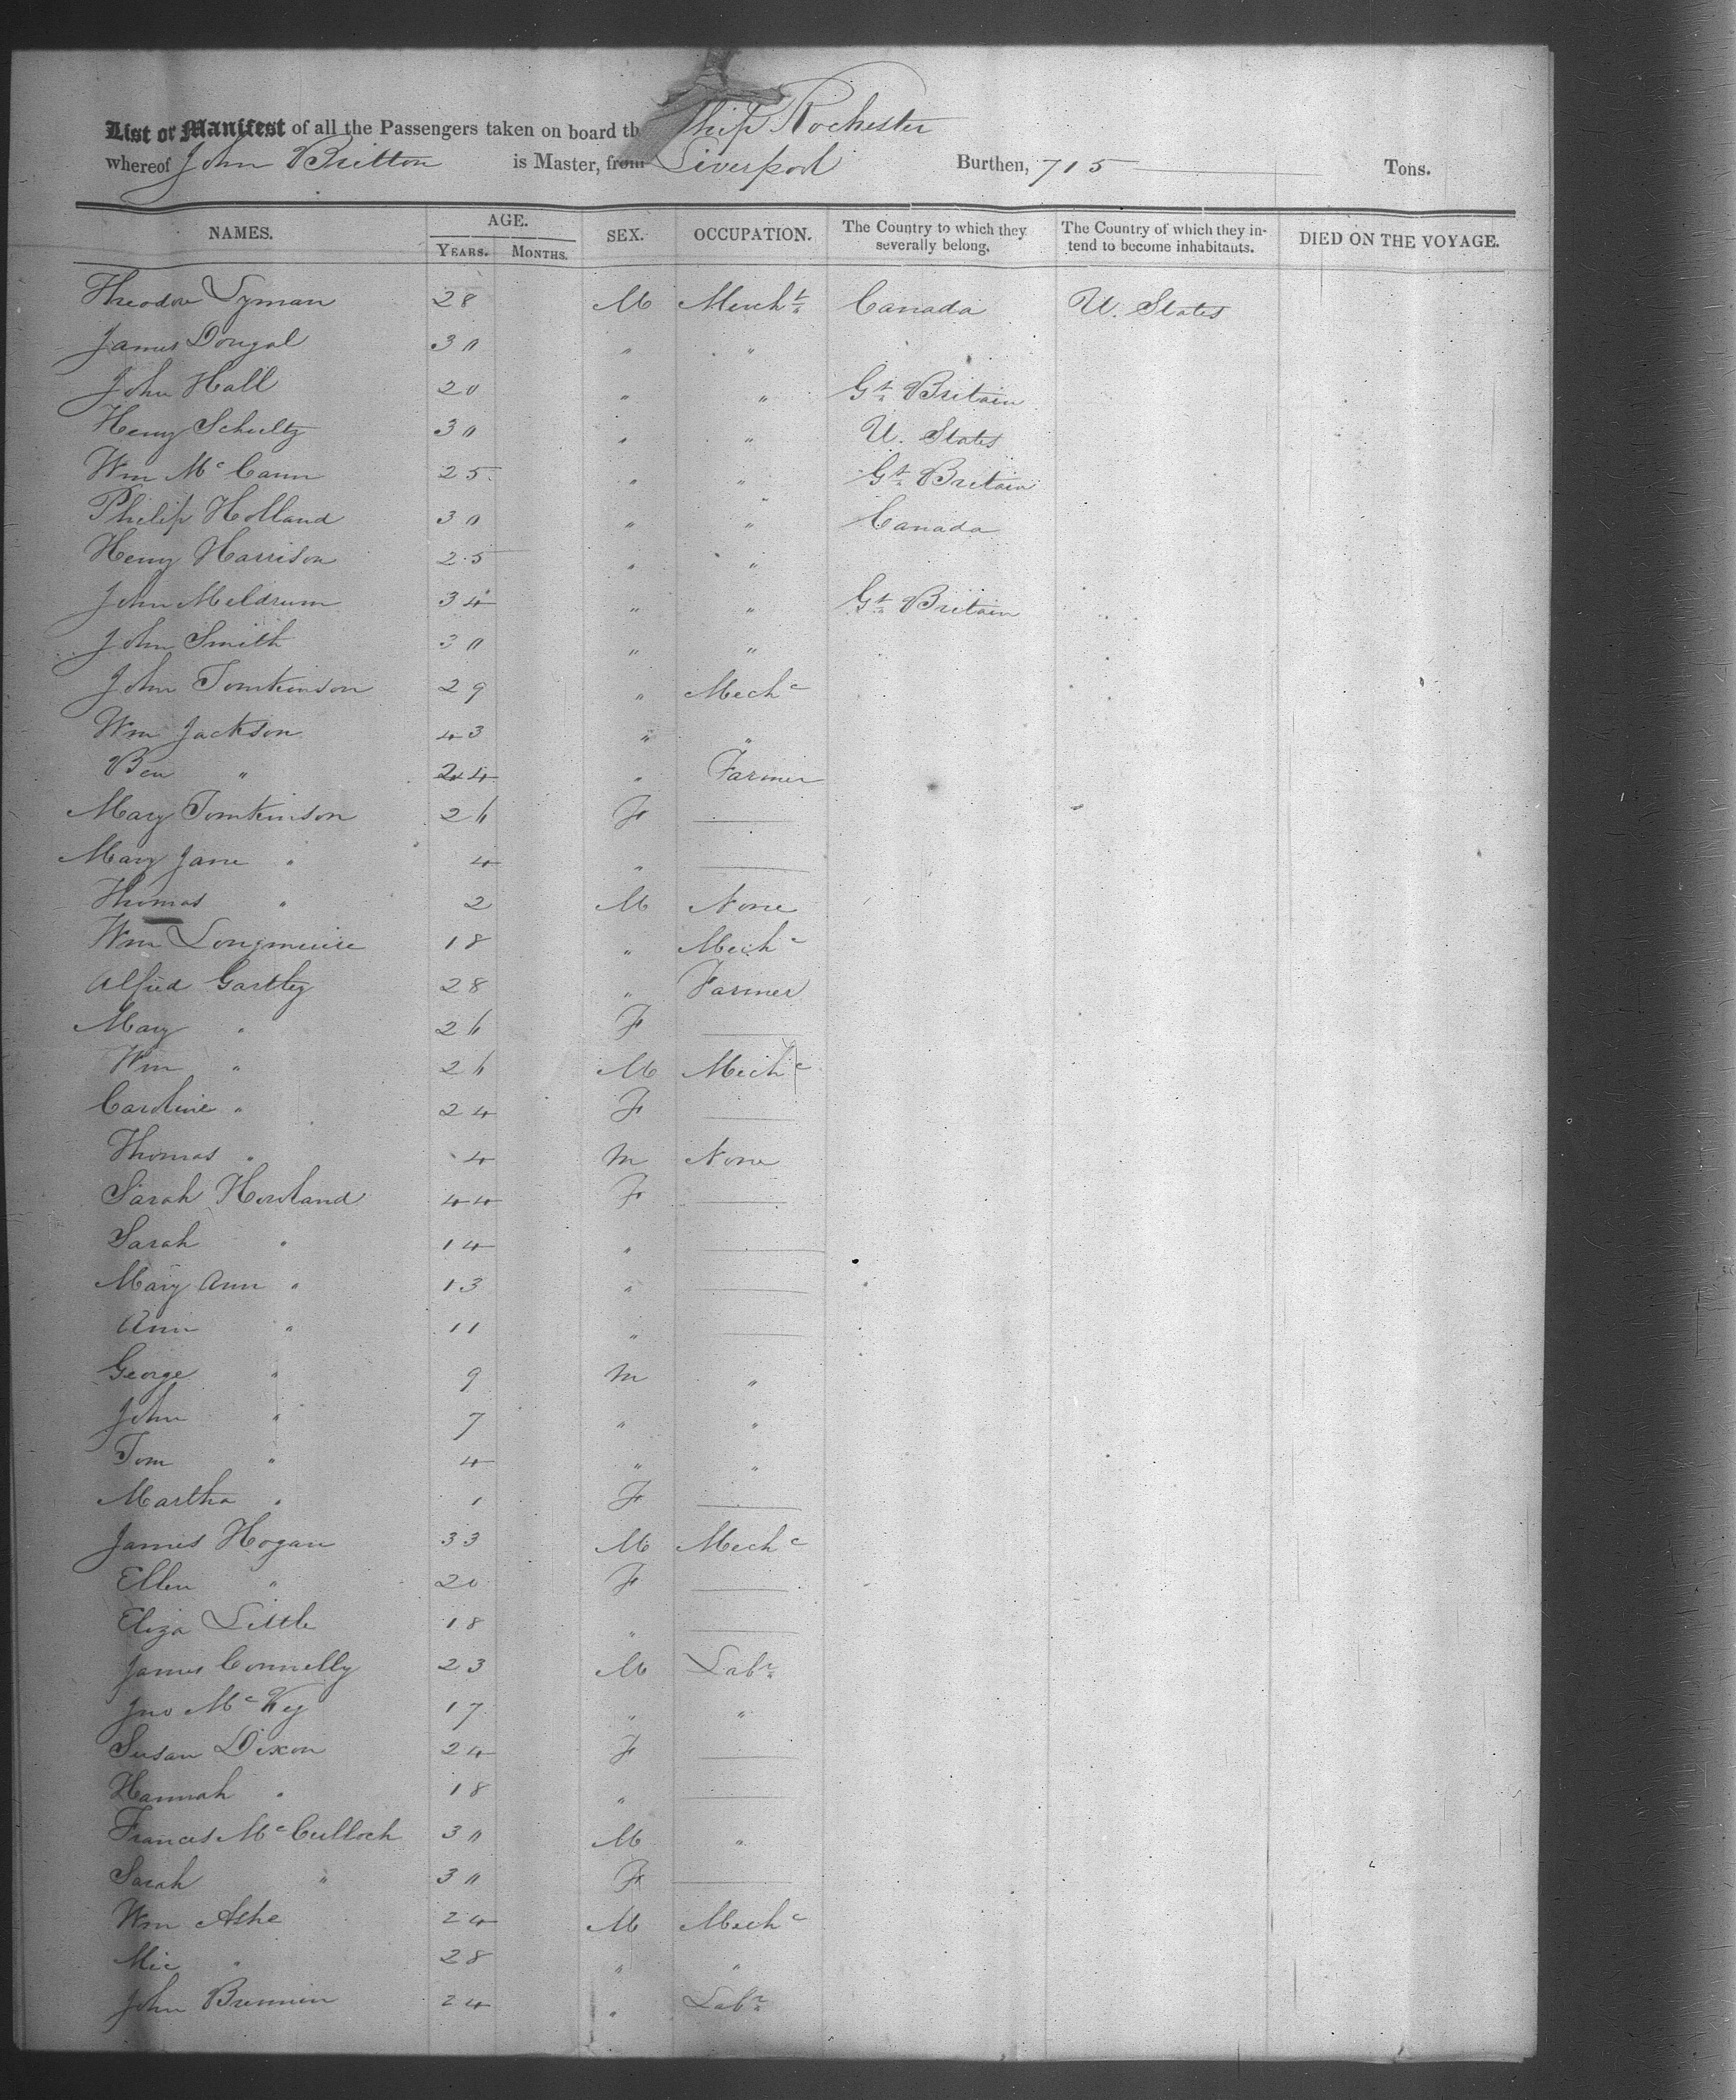 List or Manifest of all the Passengers taken on board th Ship Rochester
whereof John Britton is Master, from Liverpool Burthen, 715 Tons.
NAMES. AGE. YEARS. MONTHS. SEX. OCCUPATION. The Country to which they severally belong. The Country of which they intend to become inhabitants. DIED ON THE VOYAGE.
Theodore Lyman 28 M Mercht Canada U. States
James Dougal 30 " "
John Hall 20 " " Gt Britain
Henry Schultz 30 " " U. States
Wm McCann 25 " " Gt Britain
Philip Holland 30 " " Canada
Henry Harrison 25 " "
John Meldrum 34 " " Gt Britain
John Smith 30 " "
John Tomkinson 29 " Mechc
Wm Jackson 43 " "
Ben " 24 " Farmer
Mary Tomkinson 26 F —
Mary Jane " 4 " —
Thomas " 2 M None
Wm Longmuire 18 " Mechc
Alfred Gartley 28 " Farmer
Mary " 26 F —
Wm " 26 M Mechc
Caroline " 24 F —
Thomas " 4 M None
Sarah Howland 44 F —
Sarah " 14 " —
Mary Ann " 13 " —
Ann " 11 " —
George " 9 M "
John " 7 " "
Tom " 4 " "
Martha " 1 F —
James Hogan 33 M Mechc
Ellen " 20 F —
Eliza Little 18 " —
James Connelly 23 M Labr
Jno McKey 17 " "
Susan Dixon 24 F —
Hannah " 18 " —
Frances McCulloch 30 M "
Sarah " 30 F —
Wm Ashe 24 M Mechc
Mic " 28 " "
John Brennin 24 " Labr